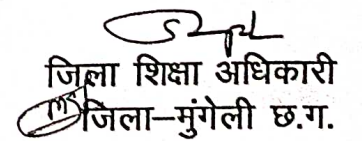 जिला शिक्षा अधिकारी
जिला–मुंगेली छ.ग.